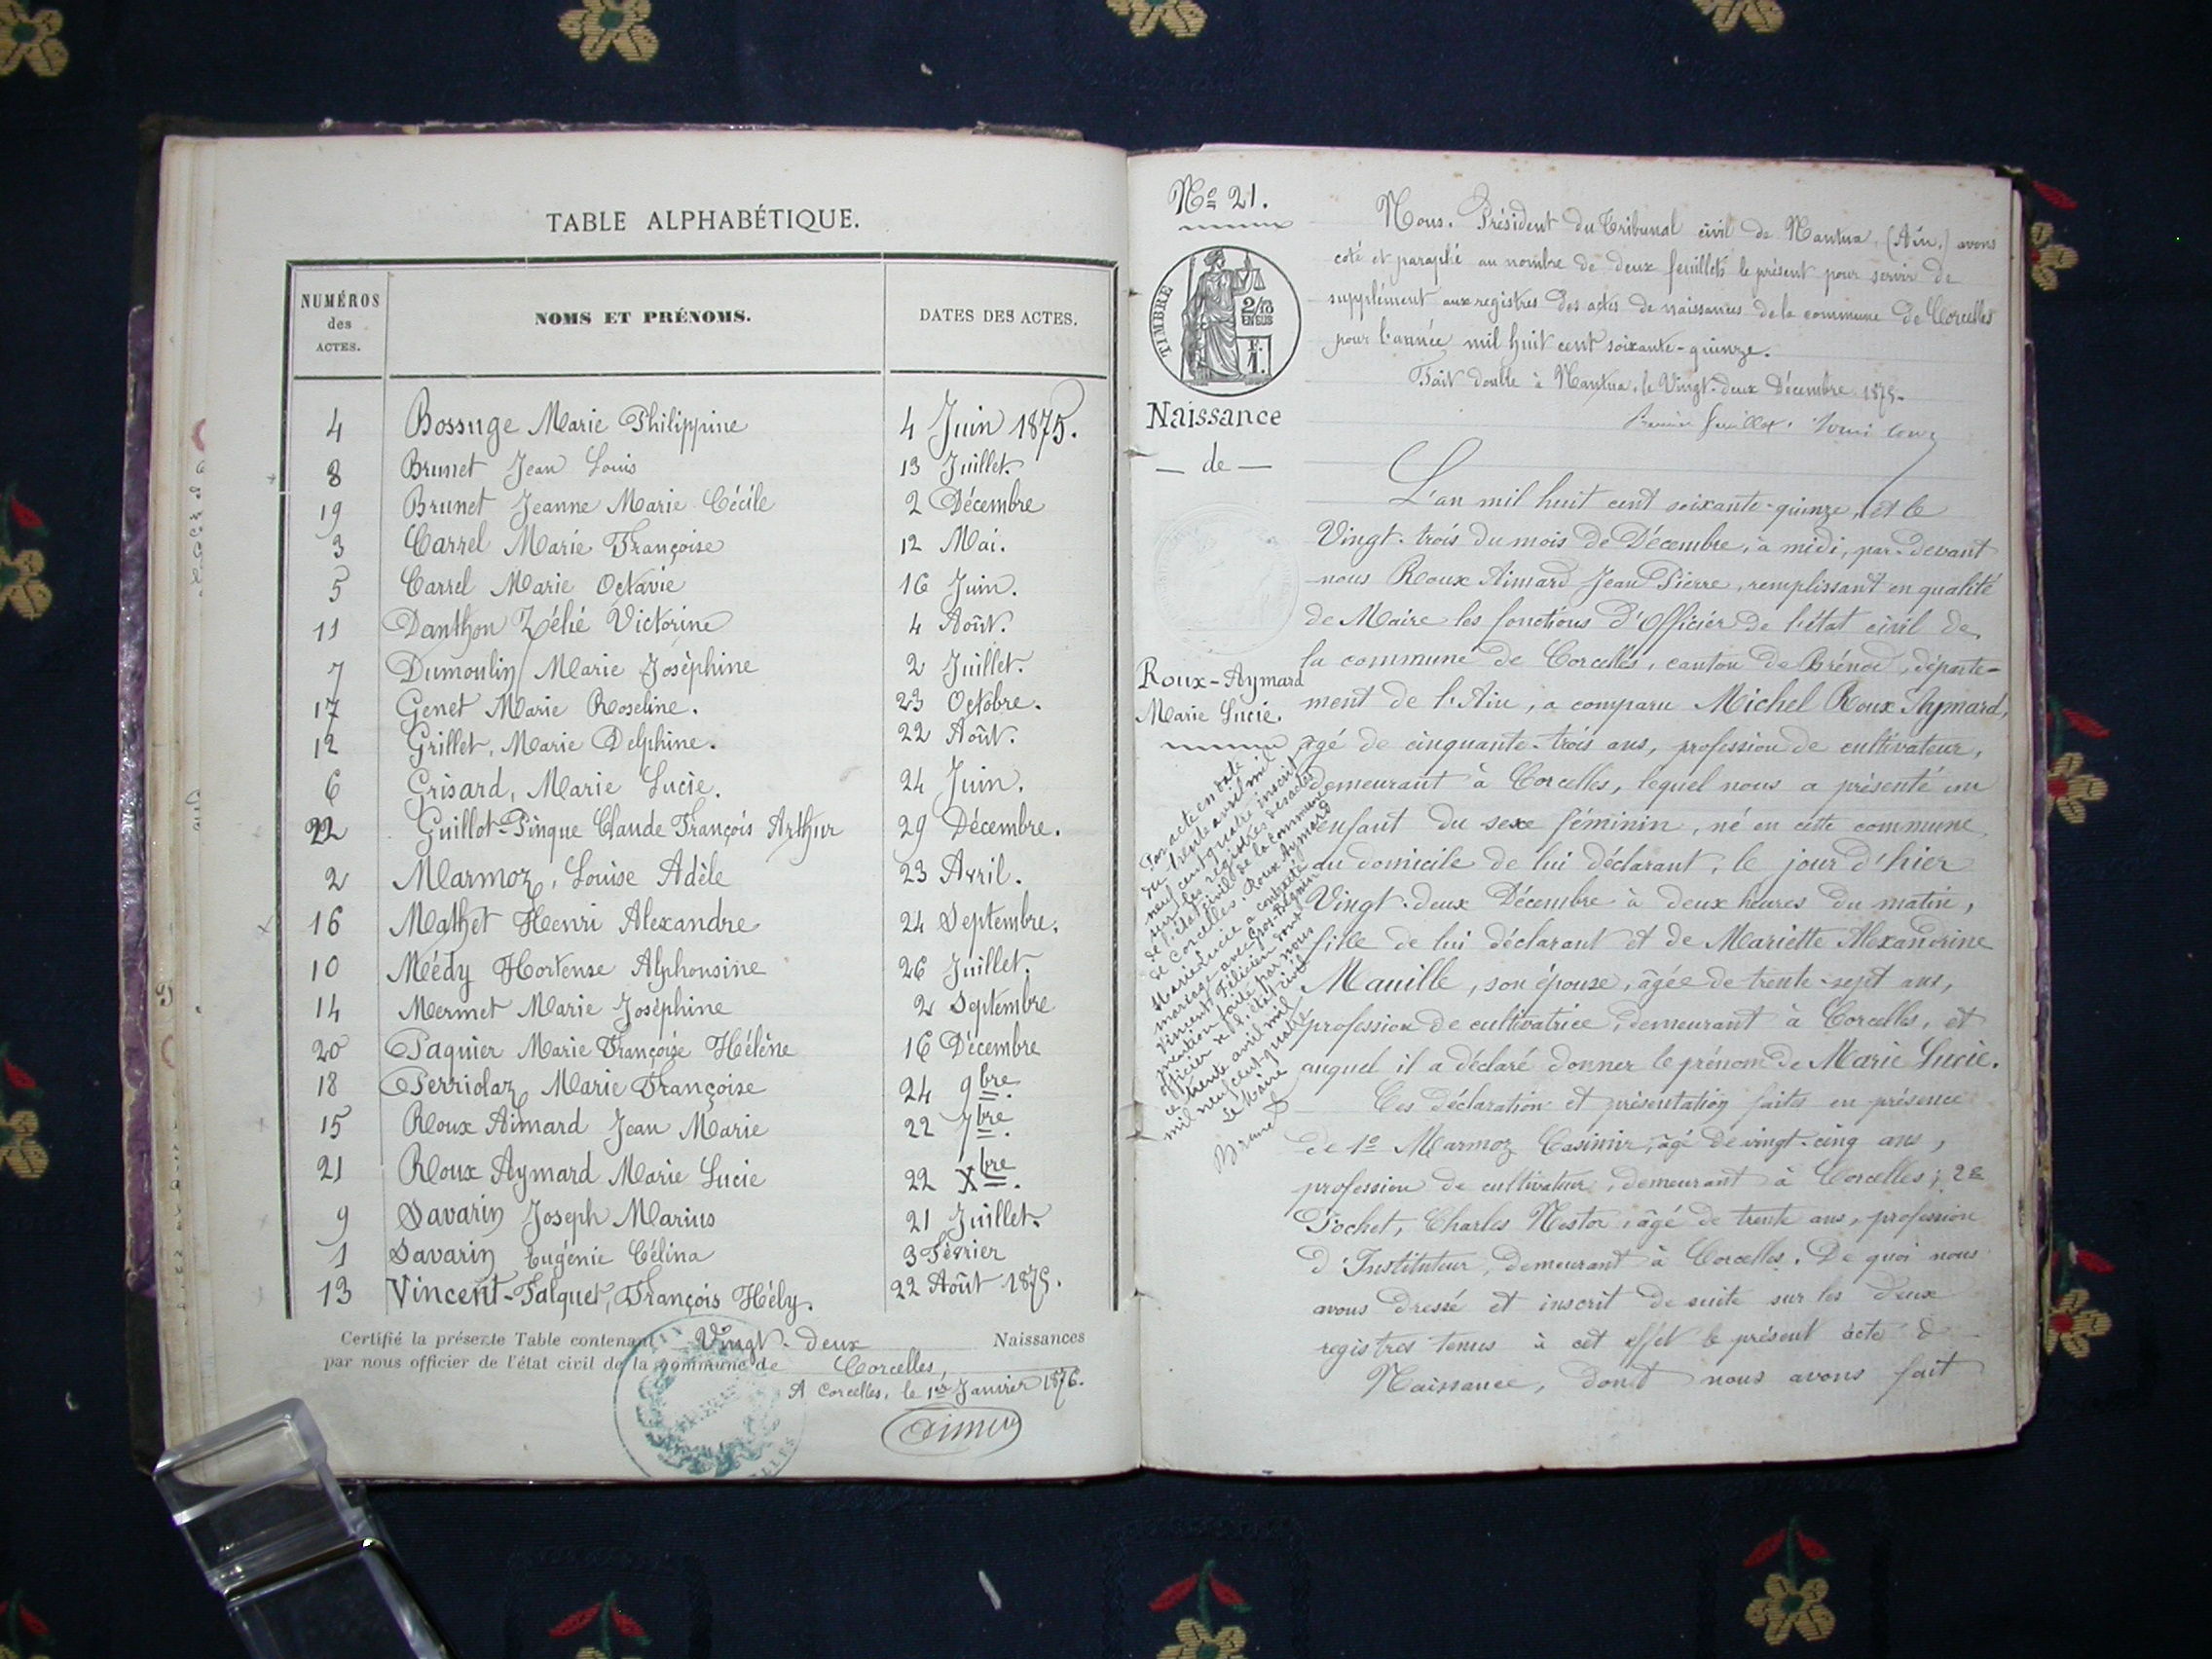 TABLE ALPHABÉTIQUE.
NUMÉROS des ACTES. NOMS ET PRÉNOMS. DATES DES ACTES.
4 Bossuge Marie Philippine 4 Juin 1875.
8 Brunet Jean Louis 13 Juillet.
19 Brunet Jeanne Marie Cécile 2 Décembre
3 Carrel Marie Françoise 12 Mai.
5 Carrel Marie Octavie 16 Juin.
11 Danthon Zélié Victorine 4 Août.
7 Dumoulin Marie Josèphine 2 Juillet.
17 Genet Marie Roseline. 23 Octobre.
12 Grillet, Marie Delphine. 22 Août.
6 Grisard, Marie Lucie. 24 Juin.
22 Guillot-Pingue Claude François Arthur 29 Décembre.
2 Marmoz, Louise Adèle 23 Avril.
16 Mathet Henri Alexandre 24 Septembre.
10 Médy Hortense Alphonsine 26 Juillet.
14 Mermet Marie Josèphine 2 Septembre
20 Paquier Marie Françoise Hélène 16 Décembre
18 Perriolaz Marie Françoise 24 9bre.
15 Roux Aimard Jean Marie 22 7bre.
21 Roux Aymard Marie Lucie 22 Xbre.
9 Savarin Joseph Marius 21 Juillet.
1 Savarin Eugénie Célina 3 Février
13 Vincent-Falquet, François Hély. 22 Août 1875.
Certifié la présente Table contenant Vingt-deux Naissances
par nous officier de l'état civil de la commune de Corcelles,
A Corcelles, le 1er Janvier 1876.
No 21.
TIMBRE
2/10
EN SUS
1F.
Naissance
— de —
Roux-Aymard
Marie Lucie.
Nous. Président du Tribunal civil de Nantua, (Ain.) avons
coté et paraphé au nombre de deux feuillets le présent pour servir de
supplément aux registres des actes de naissances de la commune de Corcelles
pour l'année mil huit cent soixante-quinze.
Fait double à Nantua, le Vingt-deux Décembre 1875.
L'an mil huit cent soixante-quinze, et le
Vingt-trois du mois de Décembre, à midi, par-devant
nous Roux Aimard Jean Pierre, remplissant en qualité
de Maire les fonctions d'Officier de l'état civil de
la commune de Corcelles, canton de Brénod, départe-
ment de l'Ain, a comparu Michel Roux Aymard,
âgé de cinquante-trois ans, profession de cultivateur,
demeurant à Corcelles, lequel nous a présenté un
enfant du sexe féminin, né en cette commune,
au domicile de lui déclarant, le jour d'hier
Vingt-deux Décembre à deux heures du matin,
fille de lui déclarant et de Mariette Alexandrine
Manille, son épouse, âgée de trente-sept ans,
profession de cultivatrice, demeurant à Corcelles, et
auquel il a déclaré donner le prénom de Marie Lucie.
Ces déclaration et présentation faites en présence
de 1o Marmoz Casimir, âgé de vingt-cinq ans,
profession de cultivateur, demeurant à Corcelles; 2e
Pochet, Charles Nestor, âgé de trente ans, profession
d'Instituteur, demeurant à Corcelles. De quoi nous
avons dressé et inscrit de suite sur les deux
registres tenus à cet effet le présent acte d
Naissance, dont nous avons fait
Par acte en date
du trente avril mil
neuf cent quatre inscrit
sur les registres des actes
de l'état civil de la commune
de Corcelles. Roux Aymard
Marie Lucie a contracté
mariage avec Gros-
Vincent Félicien dont
mention faite par nous
officier de l'état civil
ce trente avril mil
mil neuf cent quatre
Le Maire
Brunet